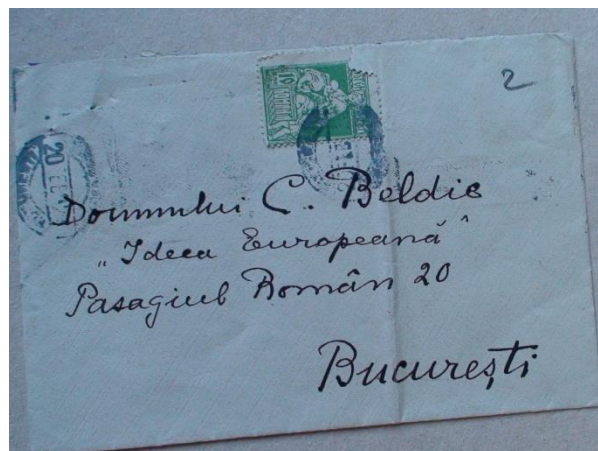 2
20
Domnului C. Beldie
„Ideea Europeană”
Pasagiul Român 20
București